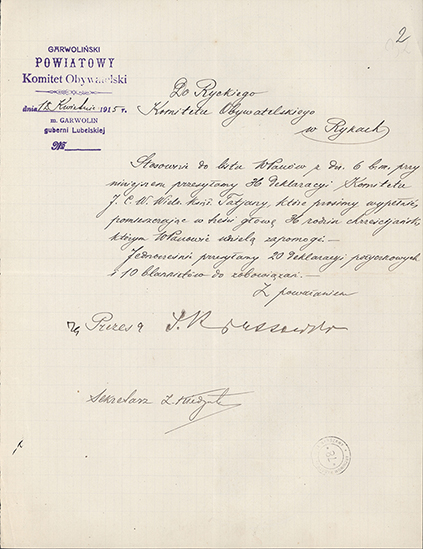 2
GARWOLIŃSKI
POWIATOWY
Komitet Obywatelski
dnia 15 Kwietnia 1915 r.
m. GARWOLIN
guberni Lubelskiej
№
Do Ryckiego
Komitetu Obywatelskiego
w Rykach
Stosownie do listu WPanów z dn. 6 b.m. przy
niniejszem przesyłamy deklaracyi Komitetu
J. C. W. Wielk. Księż. Tatjany, które prosimy wypełnić,
pomieszczając w treści głowę rodzin chrześcijańsk.
którym WPanowie udzielą zapomogi.—
Jednocześnie przesyłamy 20 deklaracyi pożyczkowych
i 10 blankietów do zobowiązań.—
Z poważaniem
za Prezesa
Sekretarz